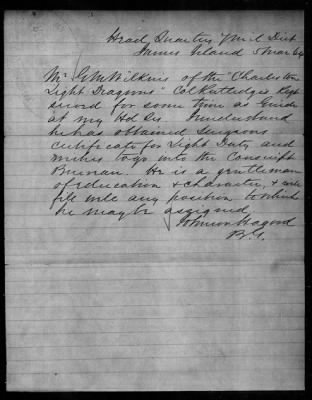 Head Quarters 7th Mil Dist
James Island 5 Mar 64
Mr G M Wilkins of the "Charleston
Light Dragoons" Col Rutledges Regt
served for some time as Guide
at my Hd Qrs. I understand
he has obtained Surgeons
certificate for Light Duty and
wishes to go into the Conscript
Bureau. He is a gentleman
of education & character, & will
fill well any position to which
he may be assigned
Johnson Hagood
B. G.